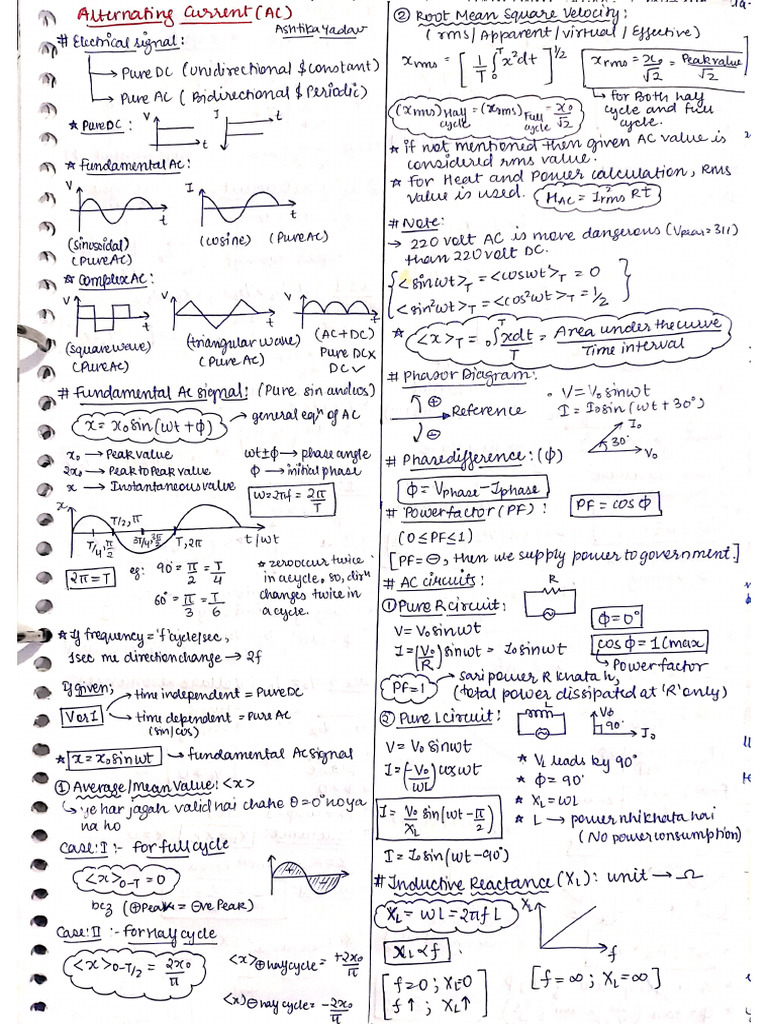 Alternating Current (AC)
Ashtika Yadav
# Electrical signal:
→ Pure DC (Unidirectional & Constant)
→ Pure AC (Bidirectional & Periodic)
★ Pure DC:
V
t
I
t
★ Fundamental AC:
V
t
I
t
(sinosoidal)
(Pure AC)
(cosine)
(Pure AC)
★ Complex AC:
V
t
V
t
V
t
(square wave)
(Pure AC)
(triangular wave)
(Pure AC)
(AC+DC)
Pure DC X
DC ✓
# Fundamental AC signal: (Pure sin and cos)
x = x₀ sin(ωt+ϕ) → general eqⁿ of AC
x₀ → Peak value
2x₀ → Peak to Peak value
x → Instantaneous value
ωt±ϕ → phase angle
ϕ → initial phase
ω = 2πf = 2π/T
x
T/4, π/2
T/2, π
3T/4, 3π/2
T, 2π
t/ωt
2π = T
eg: 90° = π/2 = T/4
60° = π/3 = T/6
★ zero occur twice
in a cycle. so, dirⁿ
changes twice in
a cycle.
★ If frequency = 'f' cycle/sec,
1 sec me direction change → 2f
If given;
V or I
→ time independent = Pure DC
→ time dependent = Pure AC
(sin/cos)
★ x = x₀ sin ωt → fundamental AC signal
① Average/Mean Value: <x>
↳ ye har jagah valid hai chahe θ=0° ho ya
na ho
Case: I :- for full cycle
<x>₀₋T = 0
bcz (⊕Peak = ⊖ve Peak)
Case: II :- for half cycle
<x>₀₋T/2 = 2x₀/π
<x>⊕ half cycle = +2x₀/π
<x>⊖ half cycle = -2x₀/π
② Root Mean Square Velocity:
(rms/Apparent/virtual/Effective)
x rms = [1/T ∫₀ᵀ x²dt]^1/2
x rms = x₀/√2 = Peak value/√2
↳ for Both half
cycle and full
cycle.
(x rms) Half cycle = (x rms) Full cycle = x₀/√2
★ if not mentioned then given AC value is
considered rms value.
★ for Heat and Power calculation, Rms
value is used.
H AC = I² rms Rt
# Note:
→ 220 volt AC is more dangerous (V peak = 311)
than 220 volt DC.
<sin ωt>T = <cos ωt>T = 0
<sin² ωt>T = <cos² ωt>T = 1/2
★ <x>T = ₀∫ᵀ xdt/T = Area under the curve/Time interval
# Phasor Diagram:
⊕
Reference
⊖
V = V₀ sin ωt
I = I₀ sin(ωt+30°)
I₀
30°
V₀
# Phase difference: (ϕ)
ϕ = V phase − I phase
# Power factor (PF):
PF = cos ϕ
(0≤PF≤1)
[PF = ⊖, then we supply power to government.]
# AC circuits:
① Pure R circuit:
R
V = V₀ sin ωt
I = (V₀/R) sin ωt = I₀ sin ωt
ϕ = 0°
cos ϕ = 1 (max)
↳ Power factor
PF = 1
→ sari power R khata h,
(total power dissipated at 'R' only)
② Pure L circuit:
L
V₀
90°
I₀
V = V₀ sin ωt
I = (-V₀/ωL) cos ωt
I = V₀/X_L sin(ωt-π/2)
I = I₀ sin(ωt-90°)
★ V_L leads by 90°
★ ϕ = 90°
★ X_L = ωL
★ L → power nhi khata hai
(No power consumption)
# Inductive Reactance (X_L): unit → Ω
X_L = ωL = 2πfL
X_L ∝ f
X_L
f
[f=0 ; X_L=0
f↑ ; X_L↑]
[f=∞ ; X_L=∞]